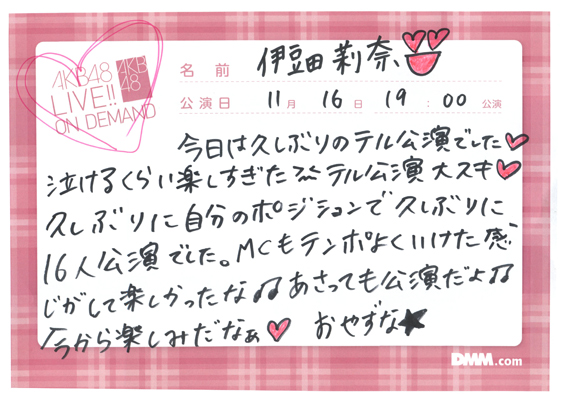 AKB48
LIVE!!
ON DEMAND
AKB
48
名前 伊豆田莉奈、
公演日 11月16日 19:00公演
今日は久しぶりのテル公演でした♥
泣けるくらい楽しすぎた〜 テル公演大スキ♥
久しぶりに自分のポジションで久しぶりに
16人公演でした。MCもテンポよくいけた感
じがして楽しかったな♪♪あさっても公演だよ♪♪
今から楽しみだなぁ♥ おやずな★
DMM.com